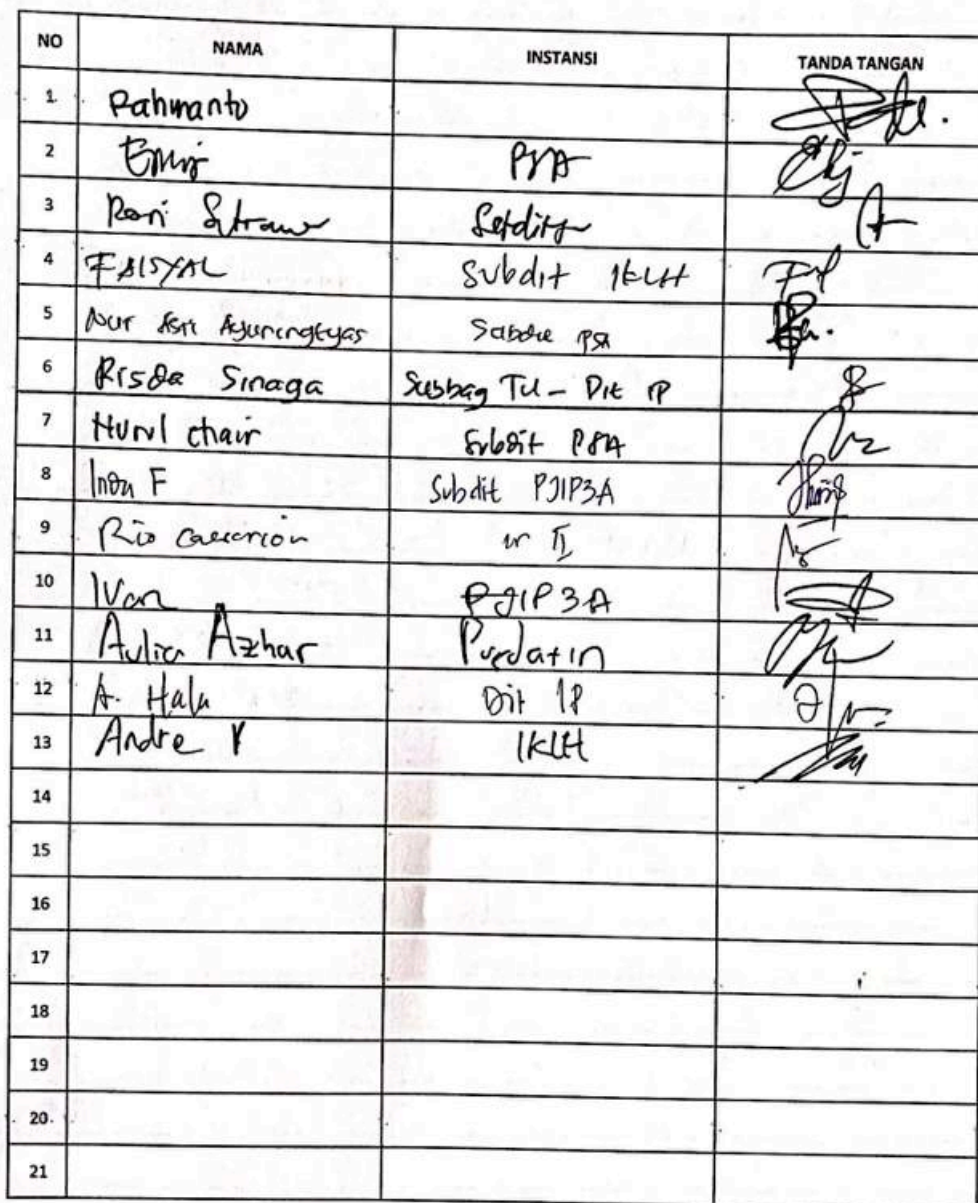 NO NAMA INSTANSI TANDA TANGAN
1. Rahmanto
2 PSA
3 Roni
4 FAISYAL Subdit IKLH
5 Nur Asri Ayuningtyas PSA
6 Risda Sinaga Subbag TU - Dit IP
7 Nurul Chair Subdit PSA
8 Inda F Subdit PJIP3A
9 Rio
10 Ivan PJIP3A
11 Aulia Azhar Pusdatin
12 A. Dit IP
13 Andre IKLH
14
15
16
17
18
19
20
21